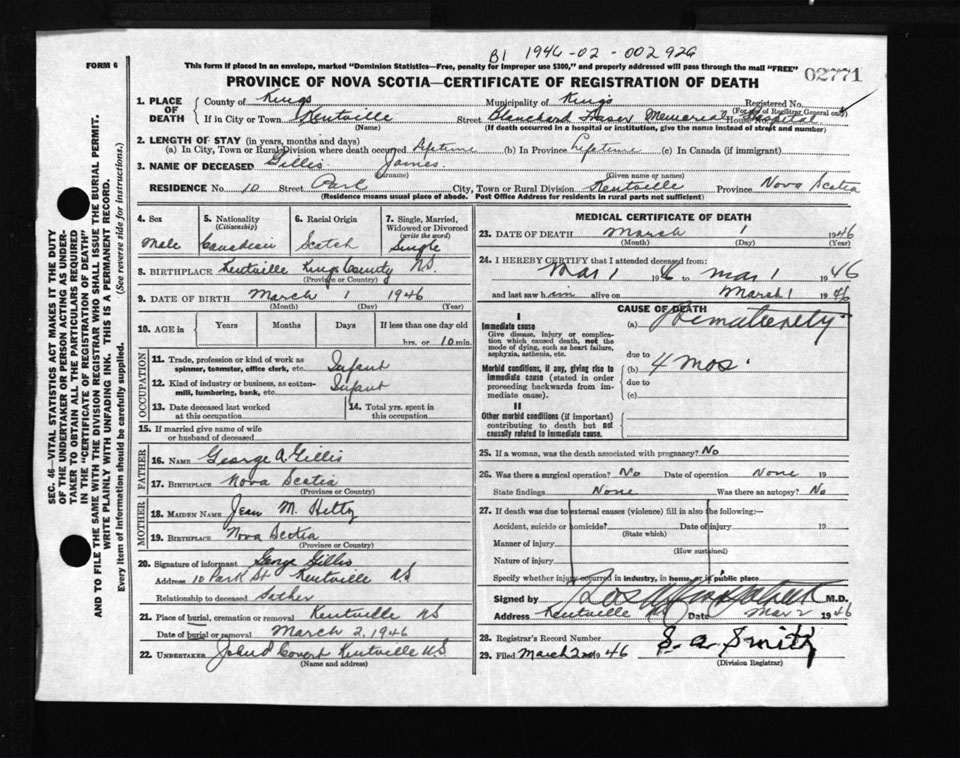 B1 1946-02-002926
FORM 6
This form if placed in an envelope, marked "Dominion Statistics—Free, penalty for improper use $300," and properly addressed will pass through the mail "FREE"
02771
PROVINCE OF NOVA SCOTIA—CERTIFICATE OF REGISTRATION OF DEATH
1. PLACE OF DEATH
County of Kings Municipality of Kings Registered No.
(For use of Registrar General only)
If in City or Town Kentville Street Blanchard Fraser Memorial House No. Hospital
(Name) (If death occurred in a hospital or institution, give the name instead of street and number)
2. LENGTH OF STAY (in years, months and days)
(a) In City, Town or Rural Division where death occurred Lifetime (b) In Province Lifetime (c) In Canada (if immigrant)
3. NAME OF DECEASED Gillis James
(Surname) (Given name or names)
RESIDENCE No. 10 Street Park City, Town or Rural Division Kentville Province Nova Scotia
(Residence means usual place of abode. Post Office Address for residents in rural parts not sufficient)
4. Sex
Male
5. Nationality
(Citizenship)
Canadian
6. Racial Origin
Scotch
7. Single, Married,
Widowed or Divorced
(write the word)
Single
8. BIRTHPLACE Kentville Kings County N.S.
(Province or Country)
9. DATE OF BIRTH March 1 1946
(Month) (Day) (Year)
10. AGE in Years Months Days If less than one day old
hrs. or 10 min.
OCCUPATION
11. Trade, profession or kind of work as
spinner, teamster, office clerk, etc. Infant
12. Kind of industry or business, as cotton-
mill, lumbering, bank, etc. Infant
13. Date deceased last worked
at this occupation
14. Total yrs. spent in
this occupation
15. If married give name of wife
or husband of deceased
FATHER
16. NAME George A Gillis
17. BIRTHPLACE Nova Scotia
(Province or Country)
MOTHER
18. MAIDEN NAME Jean M.
19. BIRTHPLACE Nova Scotia
(Province or Country)
20. Signature of informant George Gillis
Address 10 Park St. Kentville NS
Relationship to deceased Father
21. Place of burial, cremation or removal Kentville NS
Date of burial or removal March 2, 1946
22. UNDERTAKER Covert Kentville N.S
(Name and address)
MEDICAL CERTIFICATE OF DEATH
23. DATE OF DEATH March 1 1946
(Month) (Day) (Year)
24. I HEREBY CERTIFY that I attended deceased from:
Mar 1 1946 to Mar 1 1946
and last saw him alive on March 1 1946
CAUSE OF DEATH
I
Immediate cause
Give disease, injury or complication which caused death, not the mode of dying, such as heart failure, asphyxia, asthenia, etc.
(a) Prematurity
due to
Morbid conditions, if any, giving rise to immediate cause (stated in order proceeding backwards from immediate cause).
(b) 4 mos.
due to
(c)
II
Other morbid conditions (if important) contributing to death but not causally related to immediate cause.
25. If a woman, was the death associated with pregnancy? No
26. Was there a surgical operation? No Date of operation None 19
State findings None Was there an autopsy? No
27. If death was due to external causes (violence) fill in also the following:—
Accident, suicide or homicide? Date of injury 19
(State which)
Manner of injury
(How sustained)
Nature of injury
Specify whether injury occurred in industry, in home, or in public place
Signed by M.D.
Address Kentville NS Date Mar 2 1946
28. Registrar's Record Number
29. Filed March 2nd 1946 S. A. Smith
(Division Registrar)
SEC. 46—VITAL STATISTICS ACT MAKES IT THE DUTY
OF THE UNDERTAKER OR PERSON ACTING AS UNDER-
TAKER TO OBTAIN ALL THE PARTICULARS REQUIRED
IN THE "CERTIFICATE OF REGISTRATION OF DEATH"
AND TO FILE THE SAME WITH THE DIVISION REGISTRAR WHO SHALL ISSUE THE BURIAL PERMIT.
WRITE PLAINLY WITH UNFADING INK. THIS IS A PERMANENT RECORD.
Every item of information should be carefully supplied. (See reverse side for instructions.)